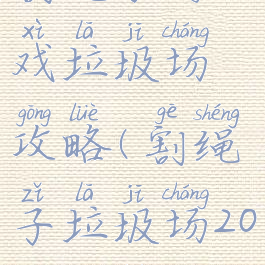 xì lā jī chǎng
戏垃圾场
gōng lüè gē shéng
攻略(割绳
zǐ lā jī chǎng
子垃圾场20